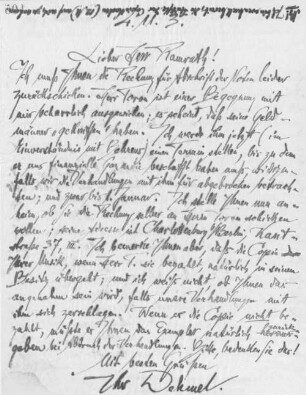 Lieber Herr Ramrath!
Ich muß Ihnen die Rechnung für Abschrift der Noten leider
zurückschicken. Herr Loran ist einer Begegnung mit
mir beharrlich ausgewichen; es scheint, daß seine Geld-
männer abgeschwirrt haben. Ich werde ihm jetzt (im
Einverständnis mit Behrens) einen Termin stellen, bis zu dem
er uns finanzielle Garantie beschafft haben muß, widrigen-
falls wir die Verhandlungen mit ihm für abgebrochen betrach-
ten; und zwar bis 1. Januar. Ich stelle Ihnen nun an-
heim, ob Sie die Rechnung selber an Herrn Loran schicken
wollen; seine Adresse ist Charlottenburg/Berlin, Kant
straße 37, III. Ich bemerke Ihnen aber, daß die Copie
Ihrer Musik, wenn Herr L. sie bezahlt, natürlich in seinen
Besitz übergeht; und ich weiß nicht, ob Ihnen das
angenehm sein wird, falls unsre Verhandlungen mit
ihm sich zerschlagen. Wenn er die Copie nicht be-
zahlt, müßte er Ihnen das Exemplar natürlich zurück
geben bei Abbruch der Verhandlungen. Bitte, bedenken Sie das!
Mit besten Grüßen
Ihr Dehmel.